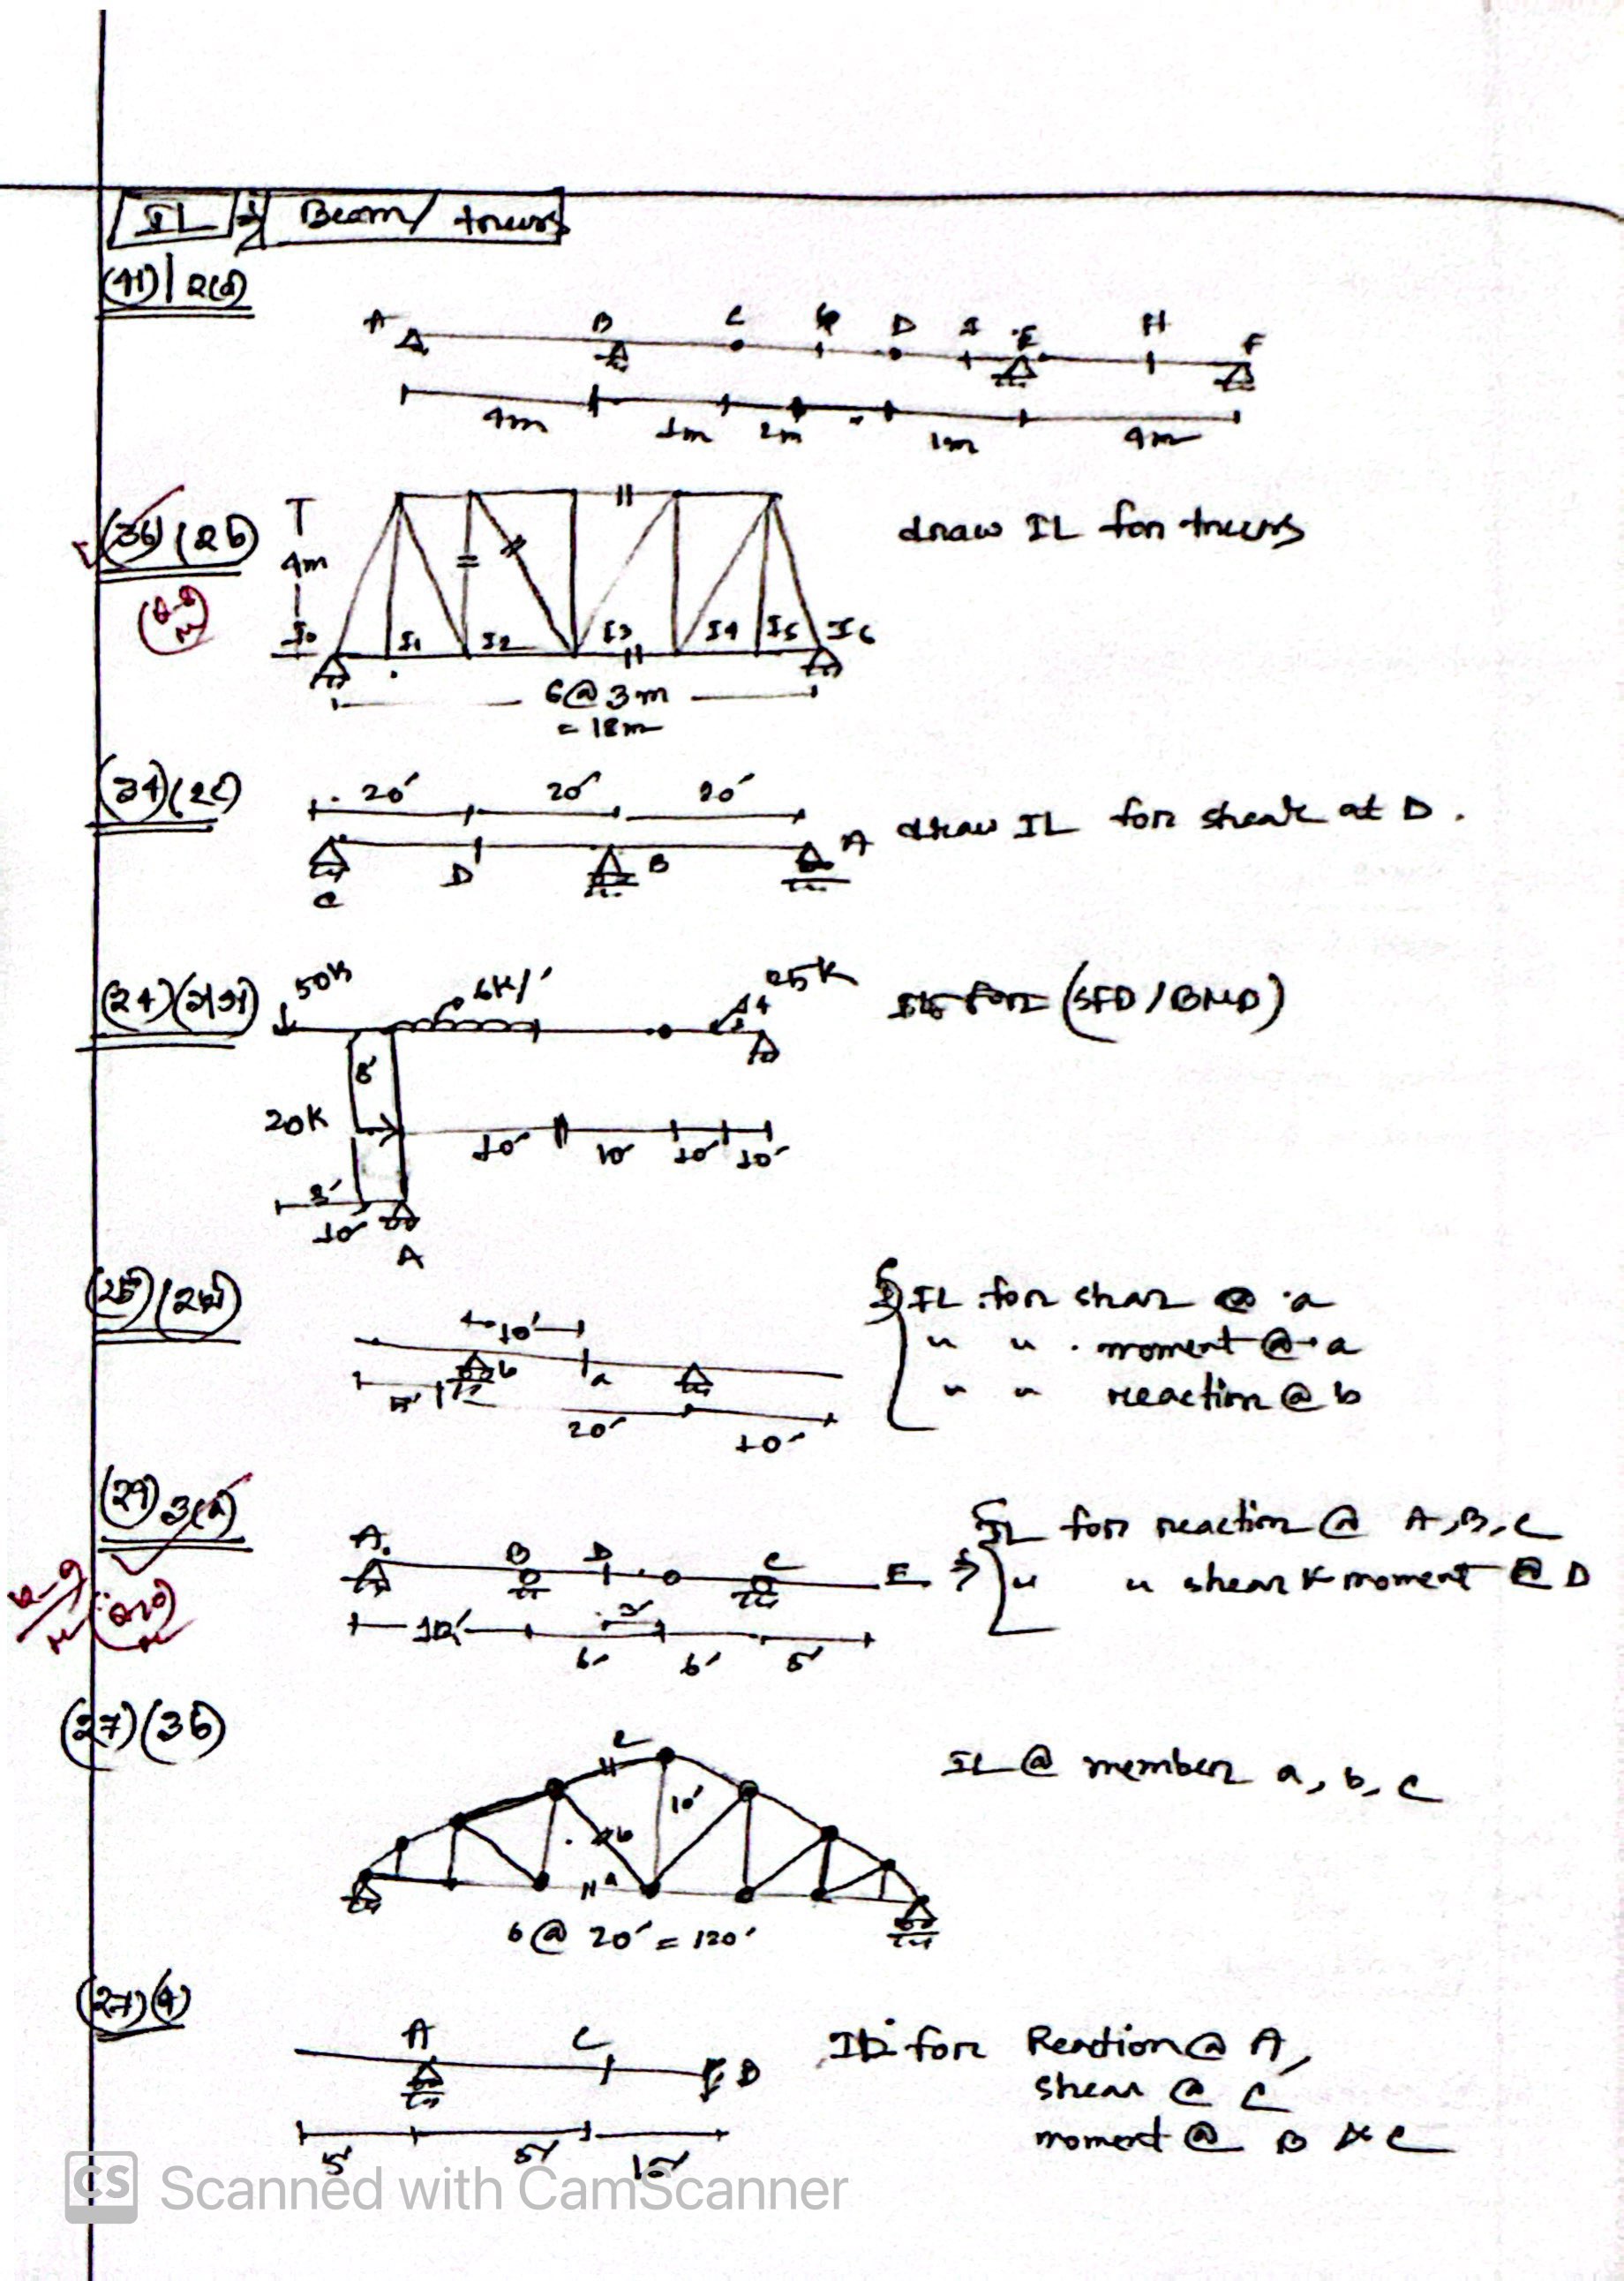 IL ⇒ Beam/ truss
(41) | 2(d)
A B C G D I E H F
4m 1m 2m 1m 4m
(36) (2b)
4m
draw IL for truss
I0 I1 I2 I3 I4 I5 I6
6@3m
= 18m
(34) (2c)
20' 20' 20'
C D B A
draw IL for shear at D.
(24)
50K 6K/' 25K
IL for (SFD/BMD)
8'
20K
10' 10' 10' 10'
8'
10'
A
(25)
10'
b a
5' 20' 10'
IL for shear @ a
" " moment @ a
" " reaction @ b
(29) 3(a)
A B D C E
IL for reaction @ A, B, C
" " shear & moment @ D
12' 6' 3' 6' 5'
(27) (3b)
c
10'
b
a
IL @ member a, b, c
6 @ 20' = 120'
(27) (4)
A C B
IL for Reaction @ A,
shear @ C
moment @ B & C
5' 5' 10'
CS Scanned with CamScanner